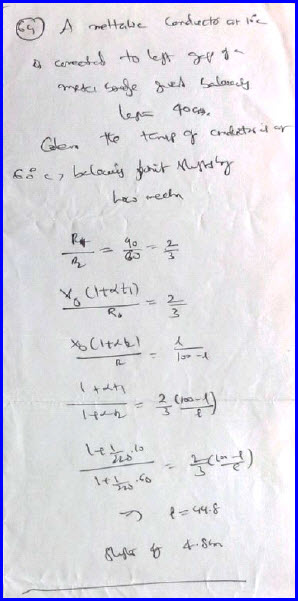 69 A mettalic conductor at 10c
is connected to left gap of a
meter bridge gives balancing
length 40cm.
when the temp of conductor is at
60°c, balancing point shifts by
how much
R1/R2 = 40/60 = 2/3
X0(1+αt1)/R0 = 2/3
X0(1+αt2)/R = l/100-l
1+αt1/1+αt2 = 2/3 (100-l/l)
1+1/220.10/1+1/220.60 = 2/3 (100-l/l)
l = 44.8
shifts by 4.8cm